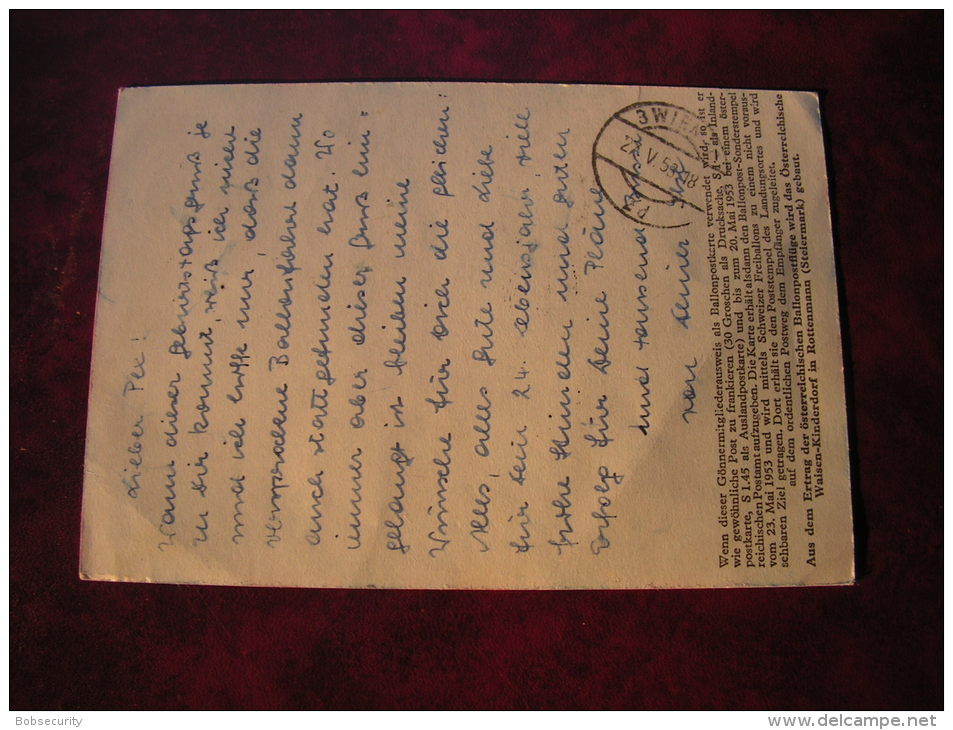 Lieber Peu!
Wann dieser Geburtstagsgruß je
zu Dir kommt, weiß ich nicht
und ich hoffe nur, daß die
versprochene Ballonfahrt dann
auch stattgefunden hat. Wo
immer aber dieser Gruß hin=
gelangt ist bleiben meine
Wünsche für Dich die gleichen:
Alles, alles Gute und Liebe
für Dein 24. Lebensjahr, viele
frohe Stunden und guten
Erfolg für Deine Pläne
und tausend Bussi
von Deiner
3 WIEN
21. V. 53 18
Wenn dieser Gönnermitgliederausweis als Ballonpostkarte verwendet wird, so ist er
wie gewöhnliche Post zu frankieren (30 Groschen als Drucksache, S 1.— als Inland-
postkarte, S 1.45 als Auslandpostkarte) und bis zum 20. Mai 1953 bei einem öster-
reichischen Postamt aufzugeben. Die Karte erhält alsdann den Ballonpost-Sonderstempel
vom 23. Mai 1953 und wird mittels Schweizer Freiballons zu einem nicht voraus-
sehbaren Ziel getragen. Dort erhält sie den Poststempel des Landungsortes und wird
auf dem ordentlichen Postweg dem Empfänger zugeleitet.
Aus dem Ertrag der österreichischen Ballonpostflüge wird das Österreichische
Waisen-Kinderdorf in Rottenmann (Steiermark) gebaut.
Bobsecurity
www.delcampe.net